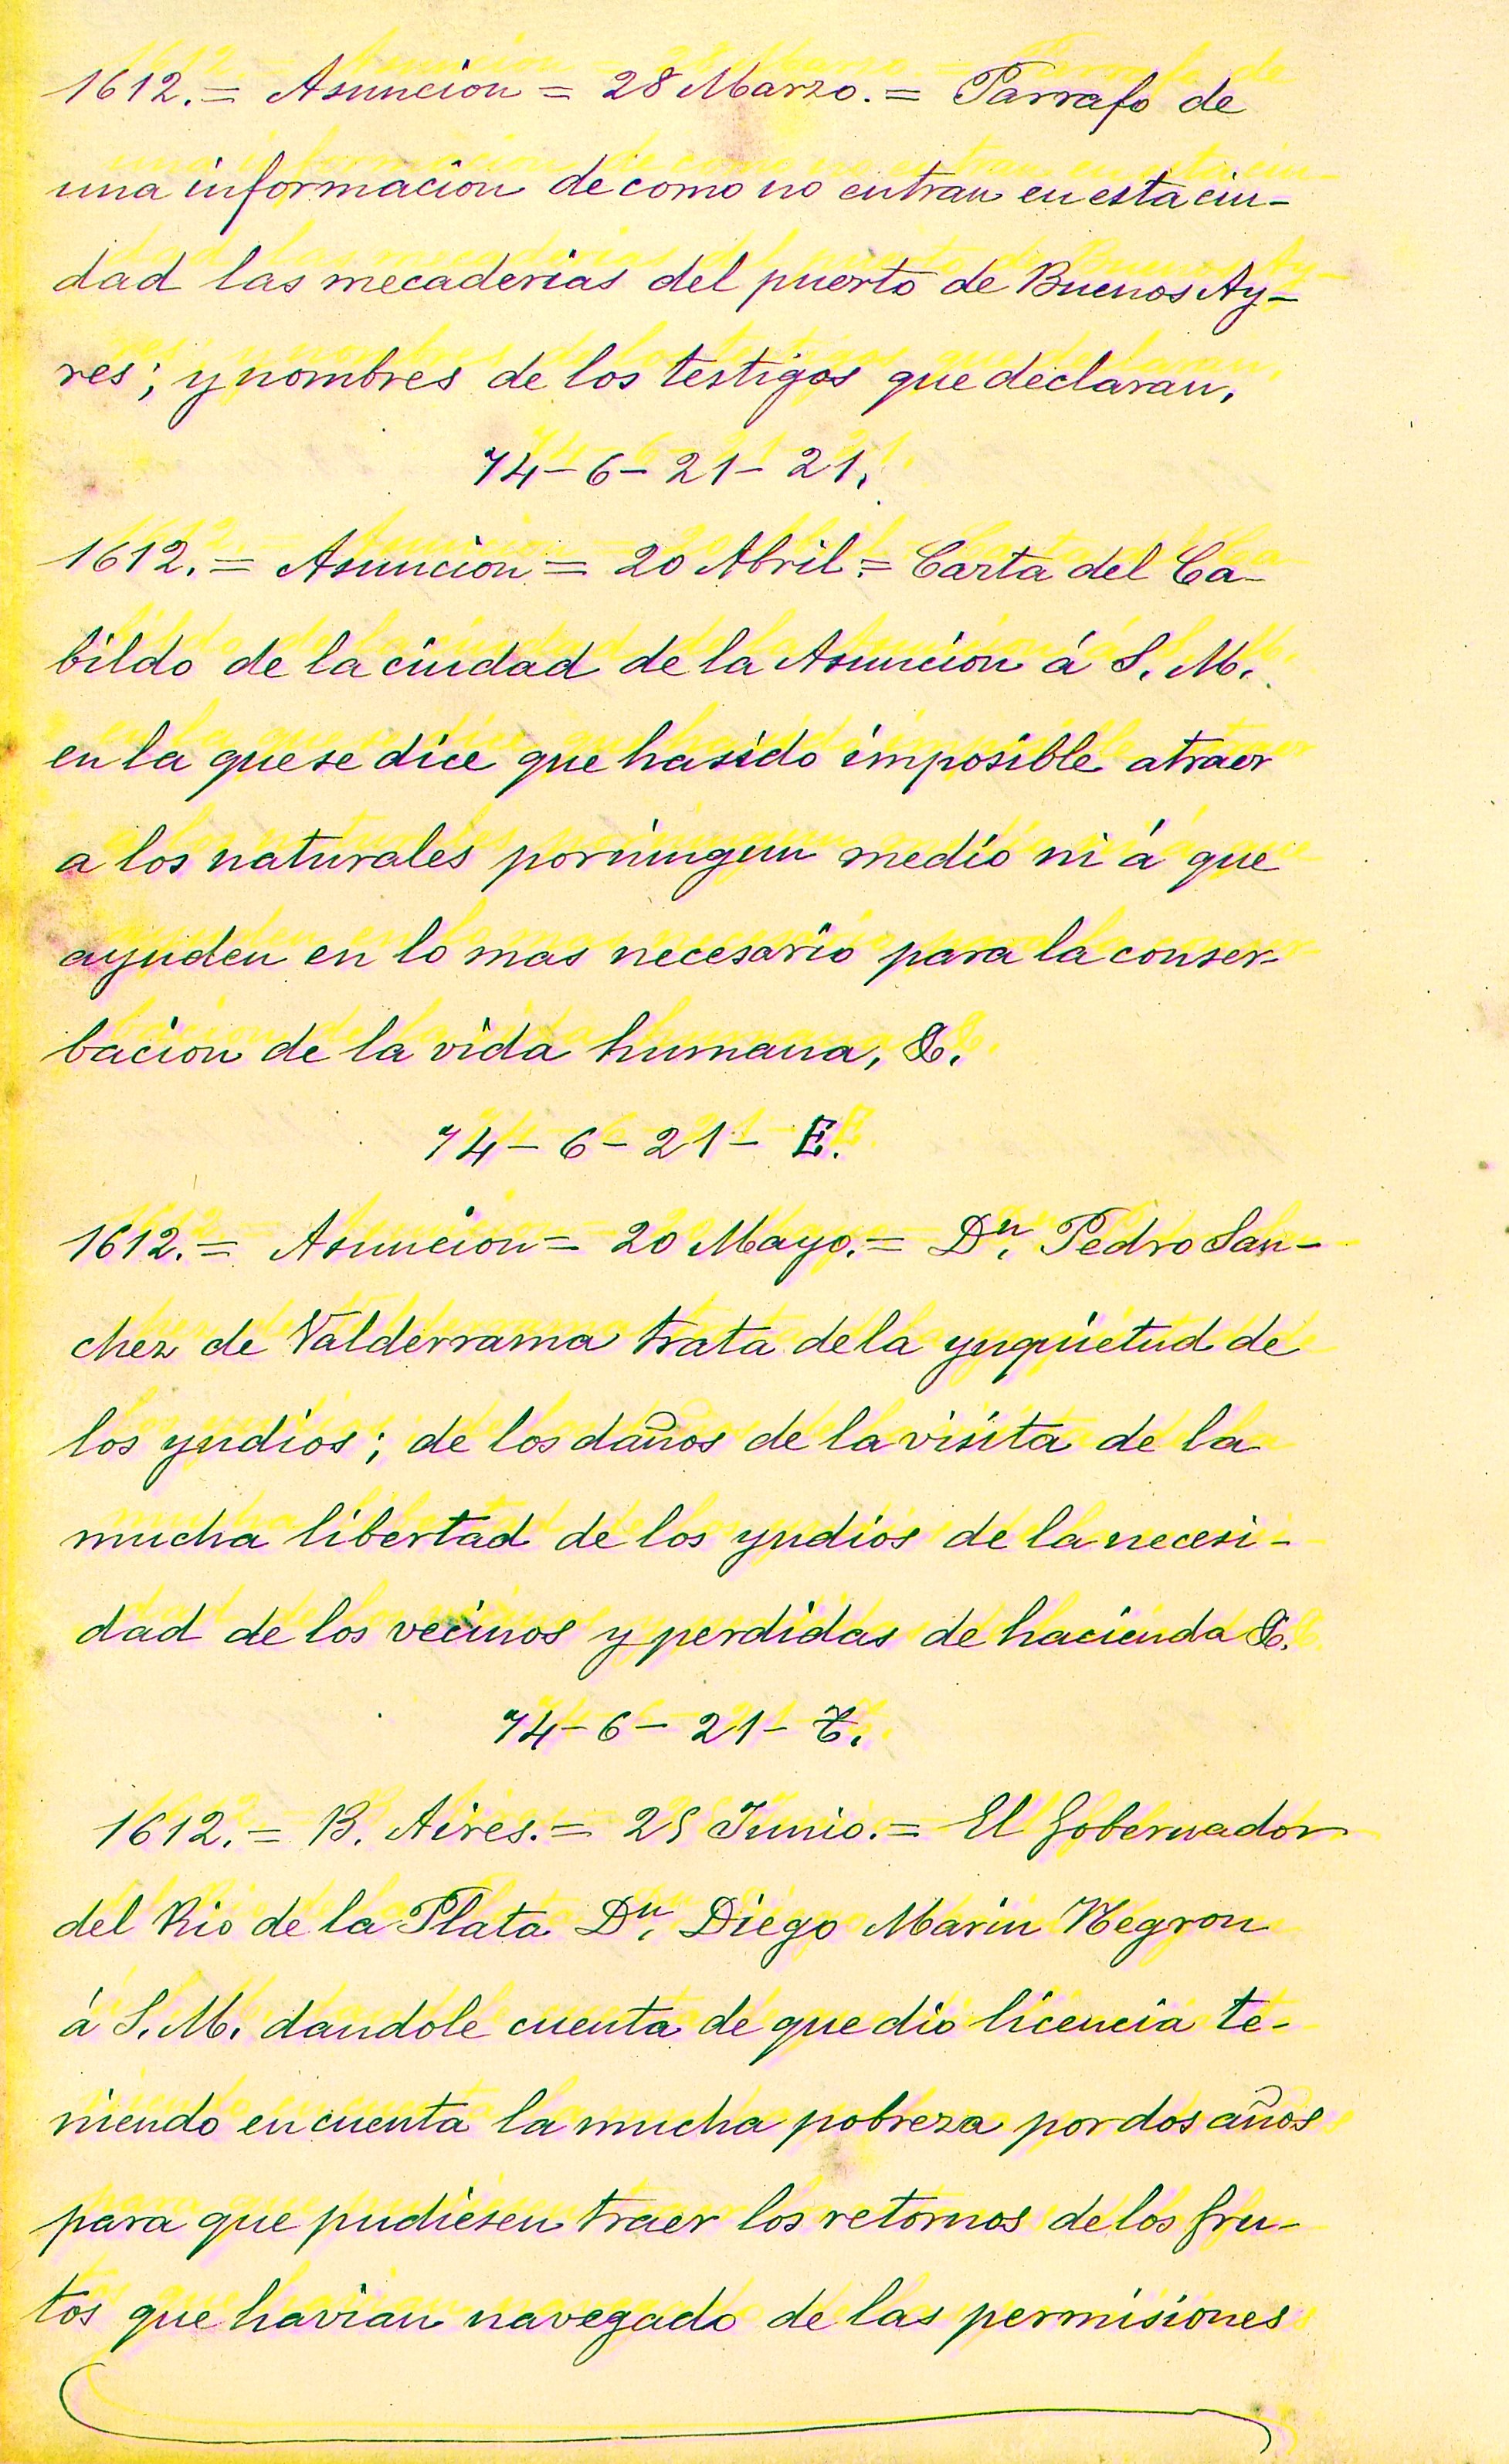 1612.= Asuncion = 28 Marzo.= Parrafo de
una informacion de como no entran en esta ciu-
dad las mecaderias del puerto de Buenos Ay-
res; y nombres de los testigos que declaran.
74-6-21-21.
1612.= Asuncion = 20 Abril.= Carta del Ca-
bildo de la ciudad de la Asuncion á S. M.
en la que se dice que ha sido imposible atraer
a los naturales por ningun medio ni á que
ayuden en lo mas necesario para la conser-
bacion de la vida humana, &.
74-6-21- E.
1612.= Asuncion = 20 Mayo.= Dn. Pedro San-
chez de Valderrama trata de la ynquietud de
los yndios; de los daños de la visita de la
mucha libertad de los yndios de la necesi-
dad de los vecinos y perdidas de hacienda &.
74-6-21-
1612.= B. Aires.= 25 Junio.= El Gobernador
del Rio de la Plata Dn. Diego Marin Negron
á S. M. dandole cuenta de que dio licencia te-
niendo en cuenta la mucha pobreza por dos años
para que pudiesen traer los retornos de los fru-
tos que havian navegado de las permisiones